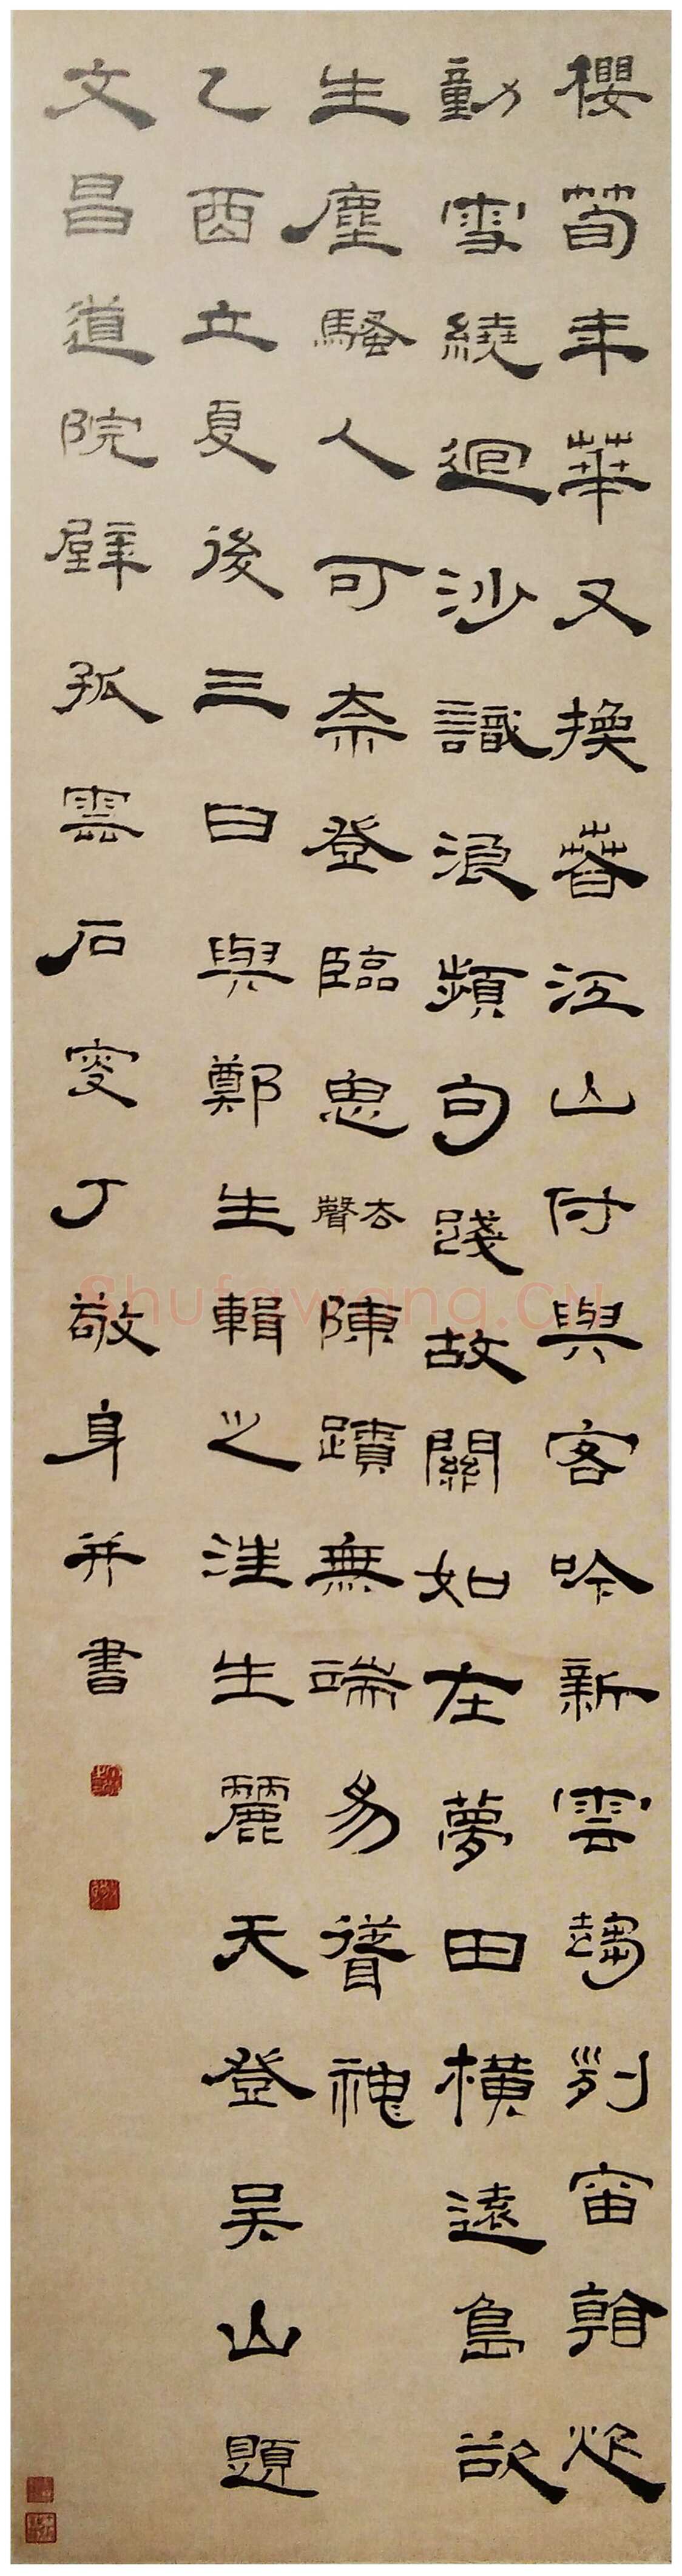 櫻筍年華又換萅江山付與客吟新雲趨列宙朝炊
動雪繞迴沙識浪頻句踐故關如在夢田橫遠島欲
生塵騷人可奈登臨思去聲陳蹟無端易聳䰠
乙酉立夏後三日與鄭生輯之汪生麗天登吳山題
文昌道院壁孤雲石叟丁敬身并書
Shufawang.cn